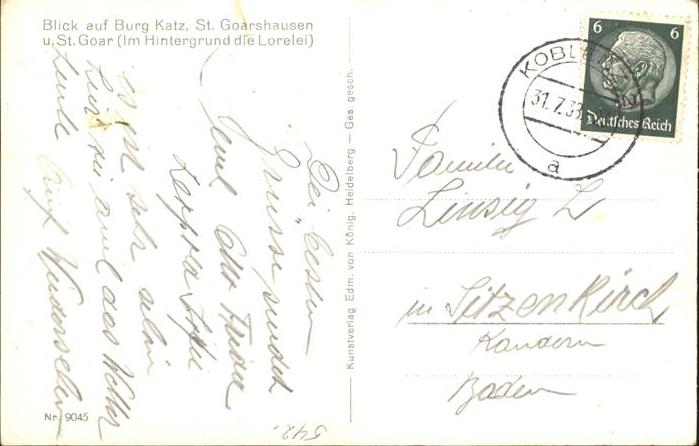 Blick auf Burg Katz, St. Goarshausen
u. St. Goar (Im Hintergrund die Lorelei)
Die besten
Grüsse sendet
Emil Otto Frieda
es ist sehr schön
hier
Auf Wiedersehen
Nr. 9045
542.
Kunstverlag Edm. von König, Heidelberg — Ges. gesch.
6 6
Deutsches Reich
KOBLENZ 2
31.7.33
a
Familie
Linsig L
in Sitzenkirch
Kandern
Baden